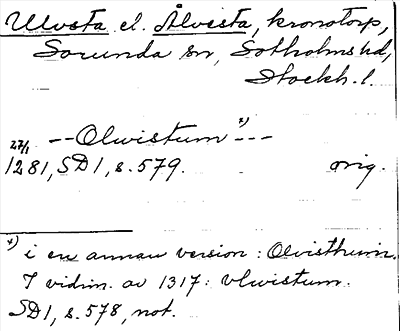 Ulvsta el. Ålvesta, kronotorp,
Sorunda sn, Sotholms hd,
Stockh. l.
27/1 --Olwistum *)---
1281, SD1, s. 579. orig.
*) i en annan version: Olvisthum.
I vidim. av 1317: vlwistum.
SD1, s. 578, not.